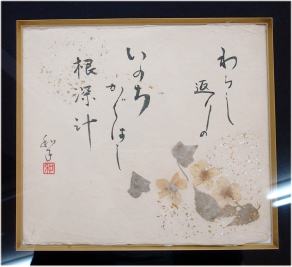 わらし
返しの
いのち
かぐはし
根深汁
和子